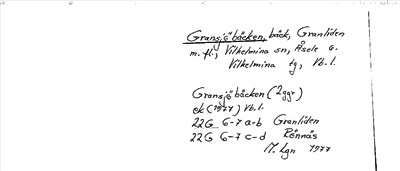 Gransjöbäcken, bäck, Granliden
m. fl., Vilhelmina sn, Åsele
Vilhelmina tg, Vb. l.
Gransjöbäcken (2ggr)
ek (1977) Vb. l.
22G 6-7 a-b Granliden
22G 6-7 c-d Rönnäs
M. Lgn 1977